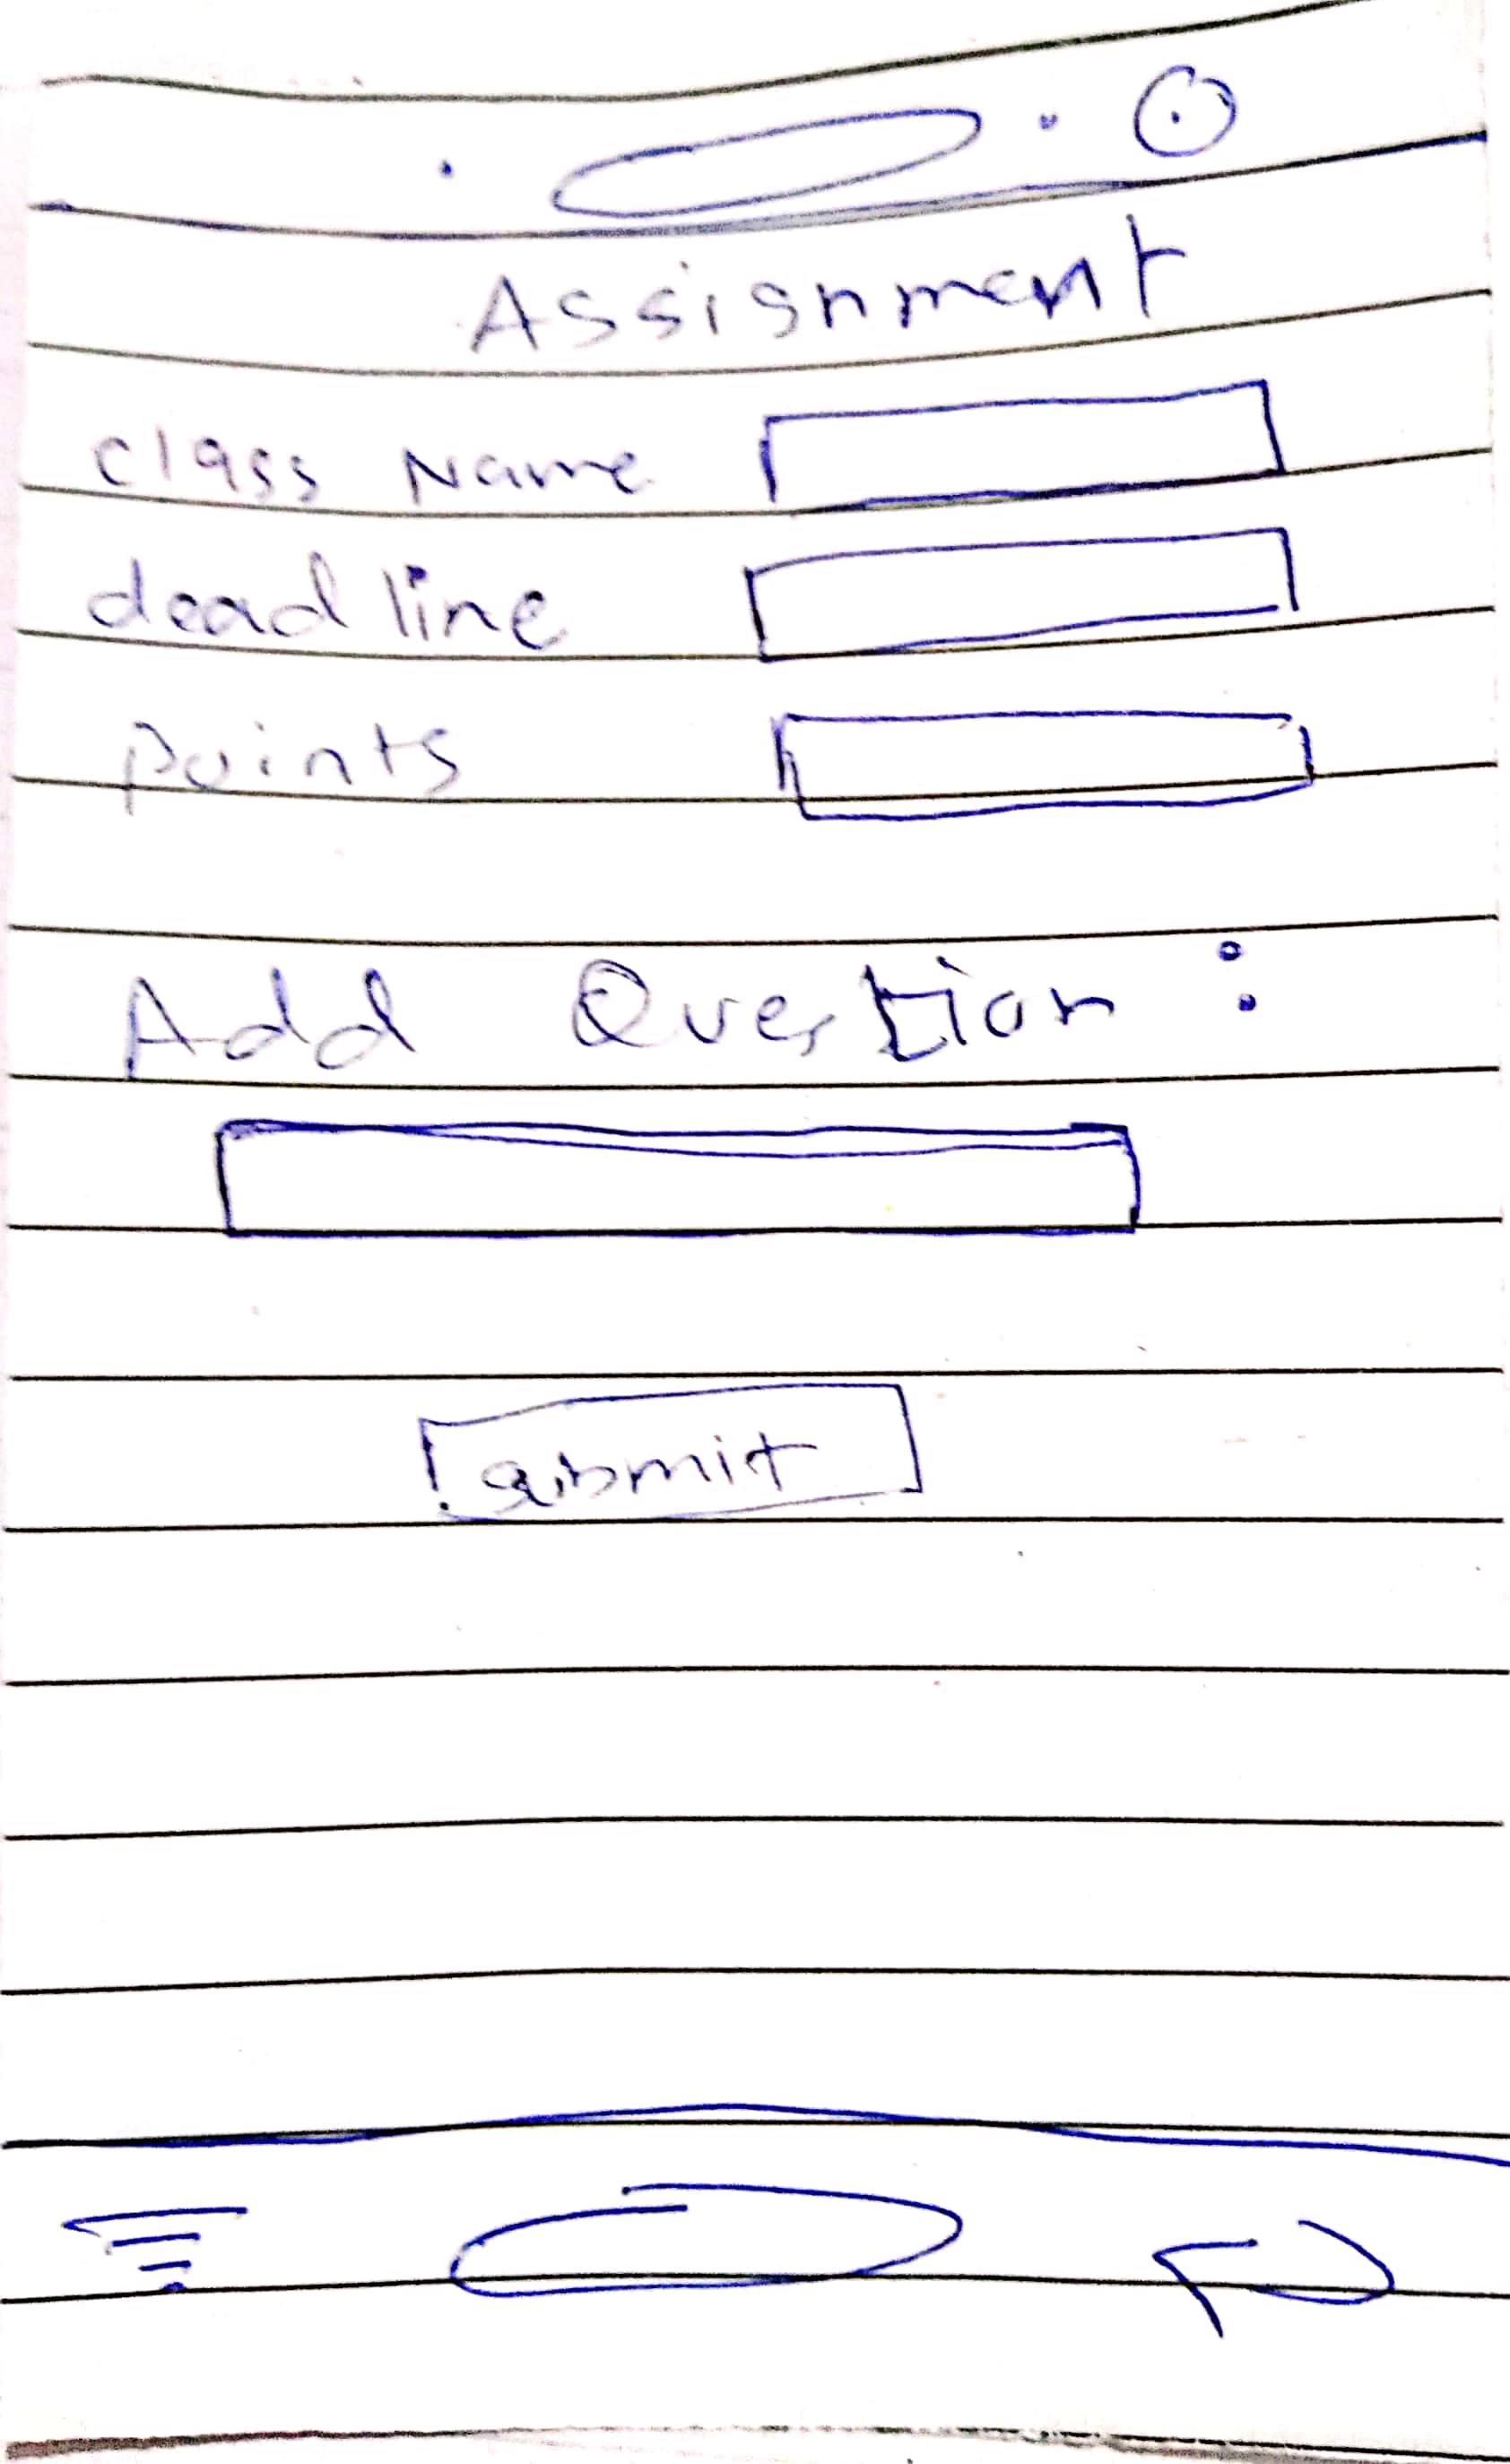 Assignment
class Name
deadline
points
Add Question :
submit